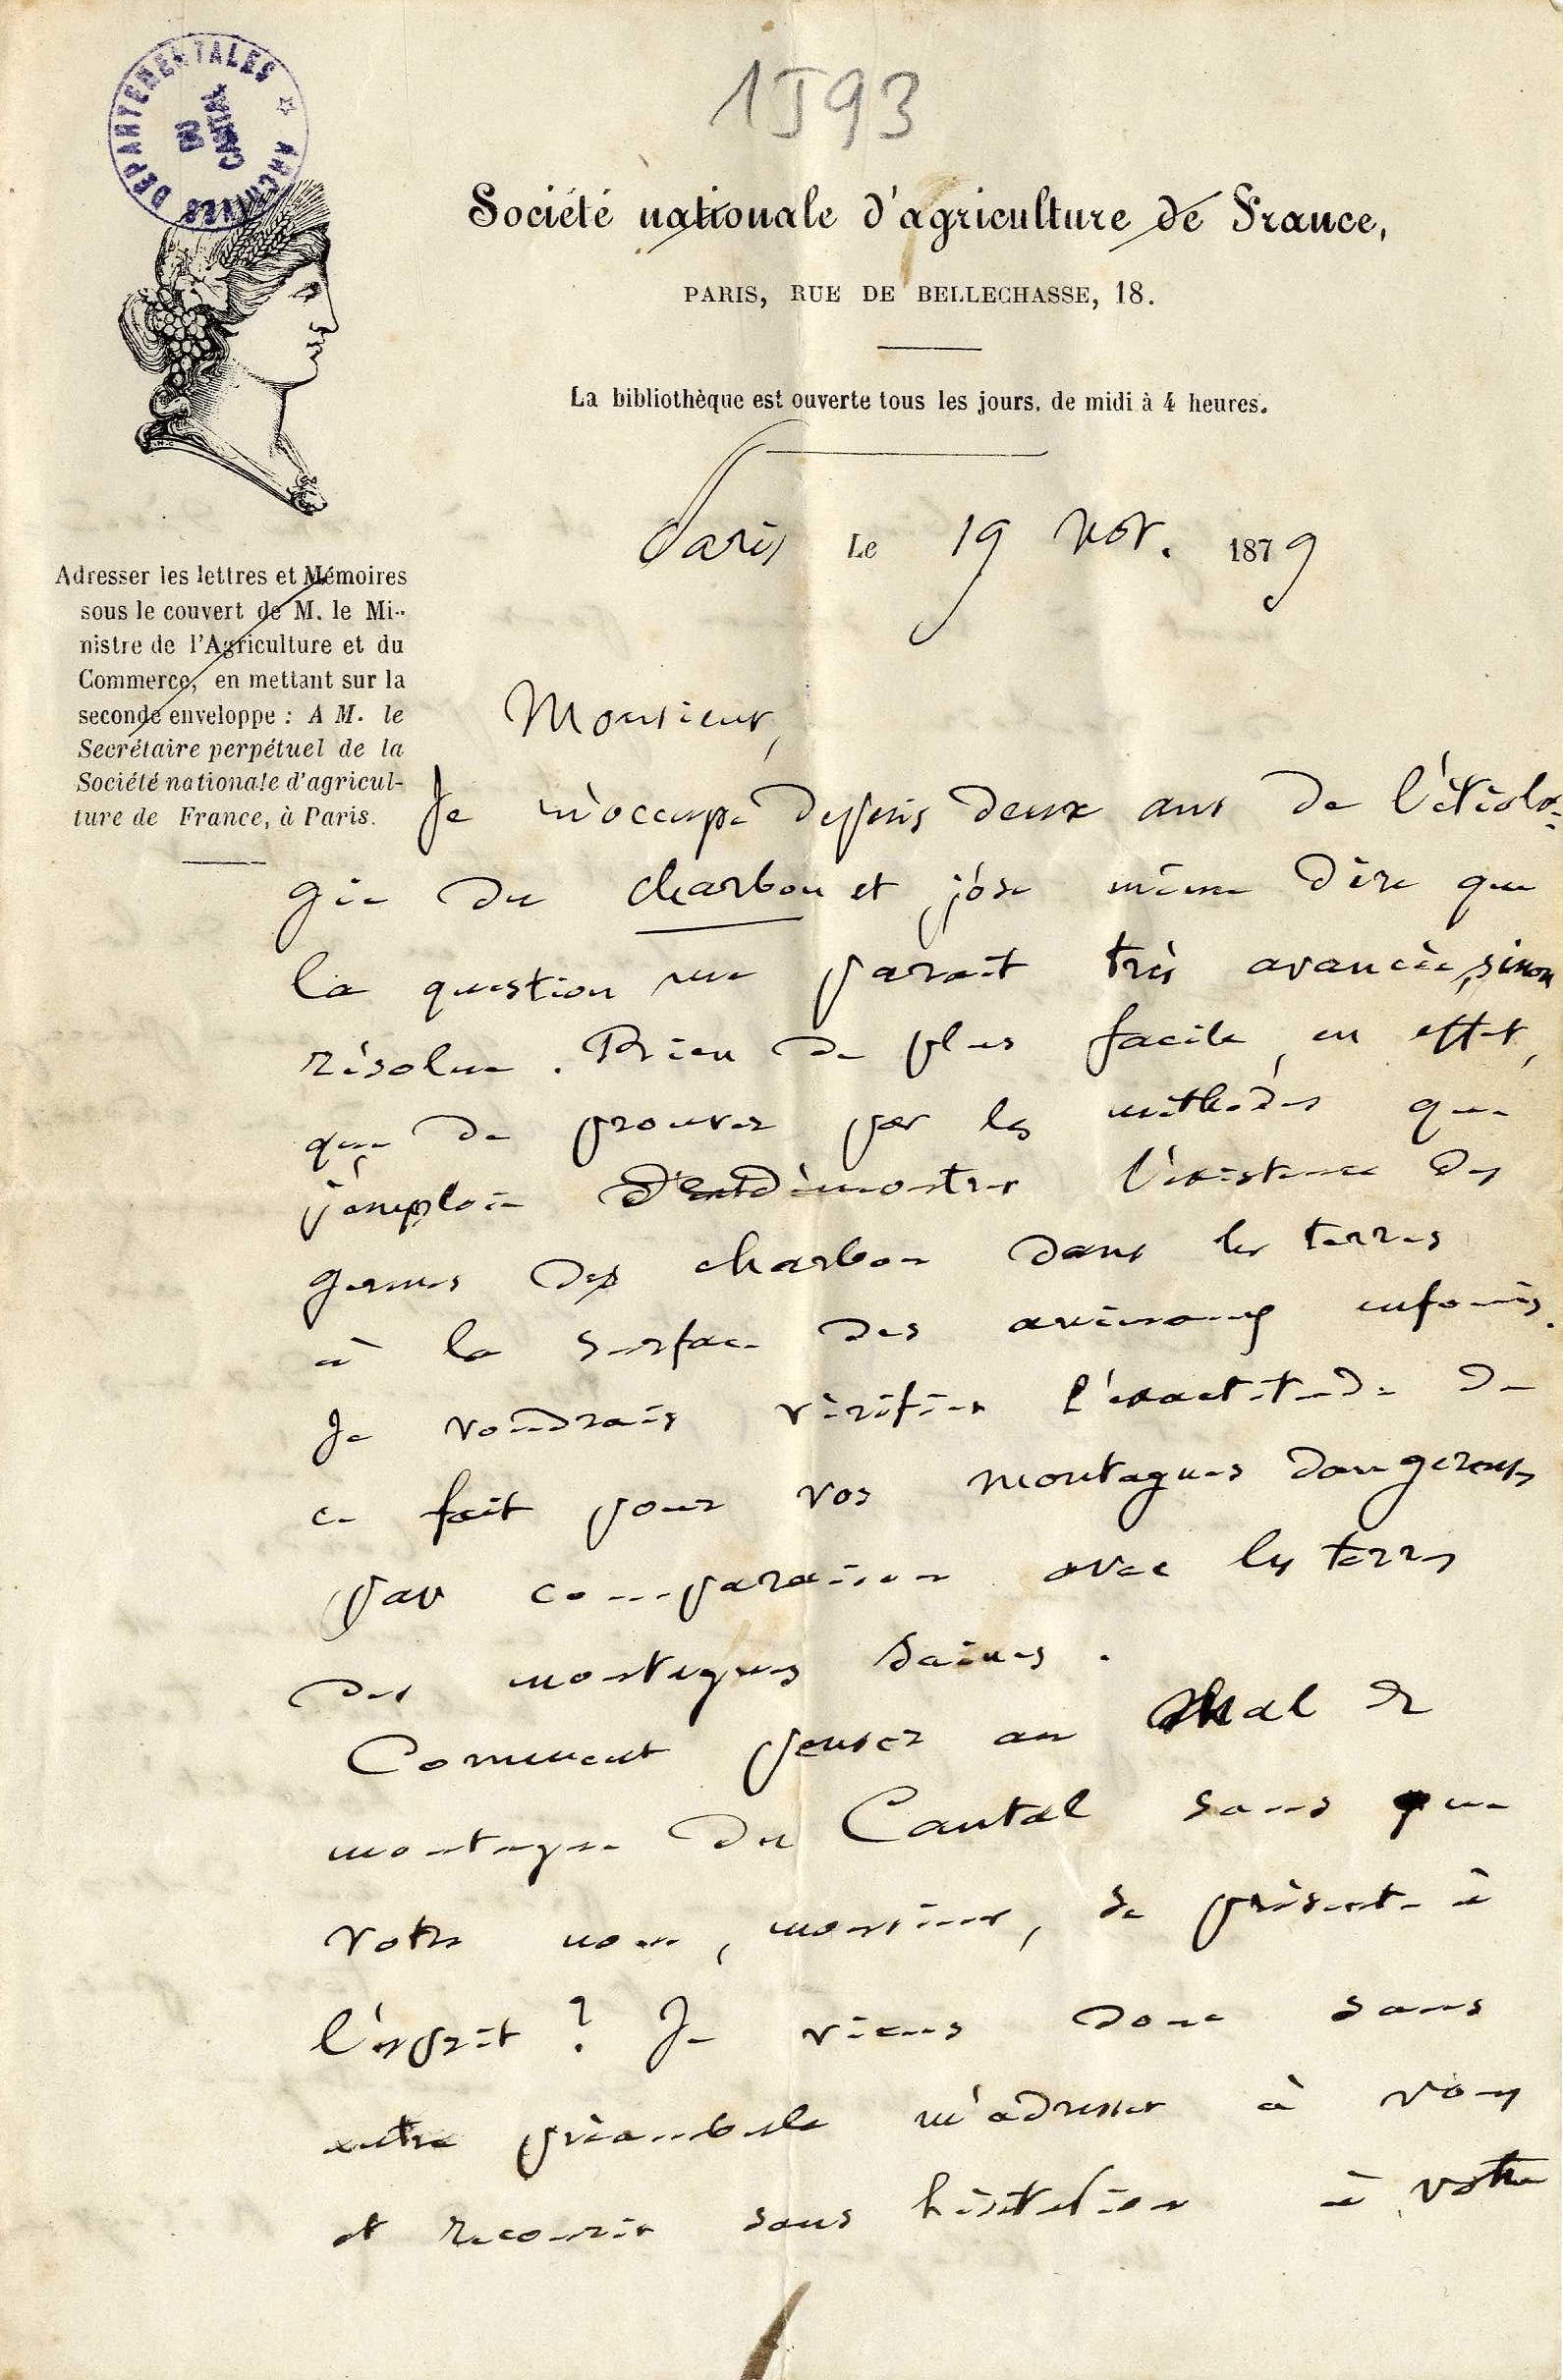 DEPARTEMENTALES ☆ ARCHIVES
DU
CANTAL
1J93
Société nationale d'agriculture de France,
PARIS, RUE DE BELLECHASSE, 18.
La bibliothèque est ouverte tous les jours, de midi à 4 heures.
Paris Le 19 nov. 1879
Adresser les lettres et Mémoires
sous le couvert de M. le Mi-
nistre de l'Agriculture et du
Commerce, en mettant sur la
seconde enveloppe : A M. le
Secrétaire perpétuel de la
Société nationale d'agricul-
ture de France, à Paris.
Monsieur,
Je m'occupe depuis deux ans de l'étiolo-
gie du charbon et j'ose même dire que
la question me parait très avancée, sinon
résolue. Rien de plus facile, en effet,
que de prouver par les méthodes que
j'emploie démontrer l'existence des
germes des charbon dans les terres
à la surface des animaux enfouis.
Je voudrais vérifier l'exactitude de
ce fait pour vos montagnes dangereuses
par comparaison avec les terres
des montagnes saines.
Comment penser au Mal de
montagne du Cantal sans que
votre nom, monsieur, se présente à
l'esprit ? Je viens donc sans
autre préambule m'adresser à vous
et recourir sans hésitation à votre